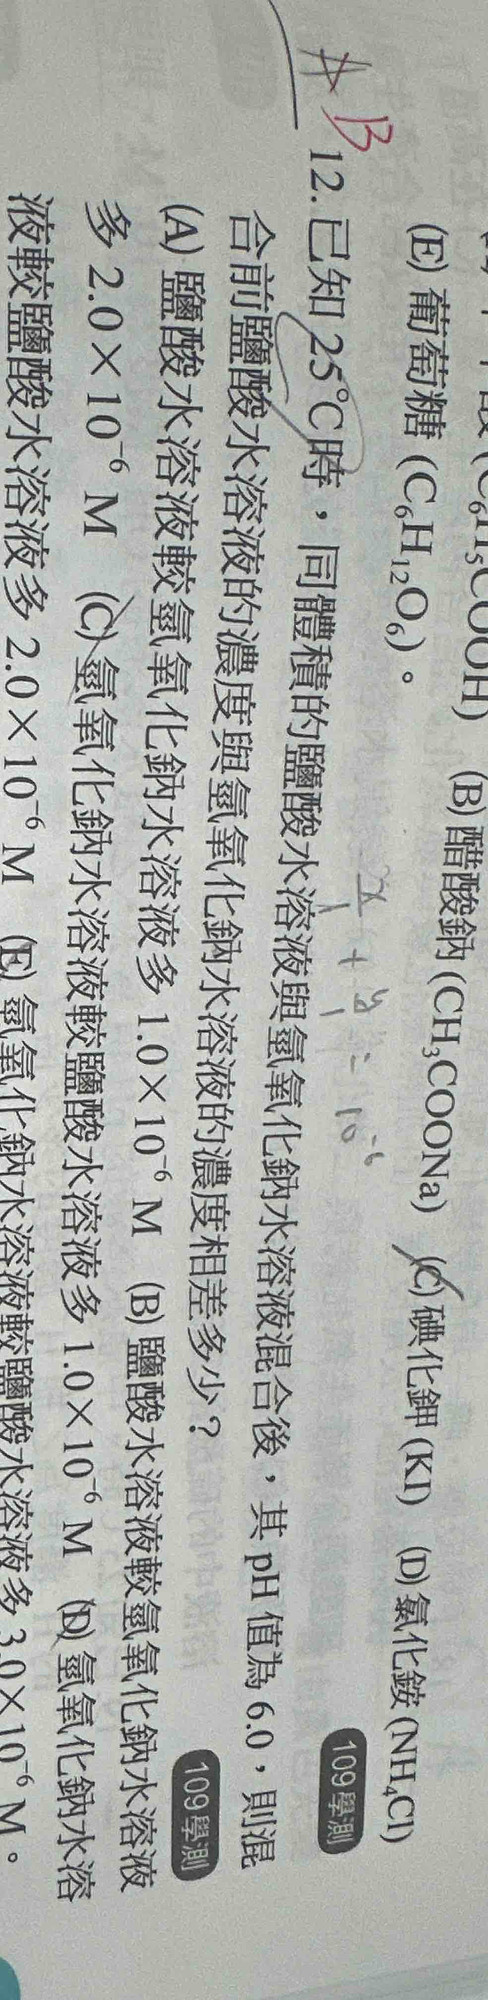 (E) 葡萄糖 (C₆H₁₂O₆)。 (B) 醋酸鈉 (CH₃COONa) (C) 碘化鉀 (KI) (D) 氯化銨 (NH₄Cl)
109 學測
x/1 + y/1 = 10⁻⁶
# B
12. 已知 25℃時，同體積的鹽酸水溶液與氫氧化鈉水溶液混合後，其 pH 值為 6.0，則混
合前鹽酸水溶液的濃度與氫氧化鈉水溶液的濃度相差多少？ 109 學測
(A) 鹽酸水溶液較氫氧化鈉水溶液多 1.0×10⁻⁶ M (B) 鹽酸水溶液較氫氧化鈉水溶液
多 2.0×10⁻⁶ M (C) 氫氧化鈉水溶液較鹽酸水溶液多 1.0×10⁻⁶ M (D) 氫氧化鈉水溶
液較鹽酸水溶液多 2.0×10⁻⁶ M (E) 氫氧化鈉水溶液較鹽酸水溶液多 3.0×10⁻⁶ M。